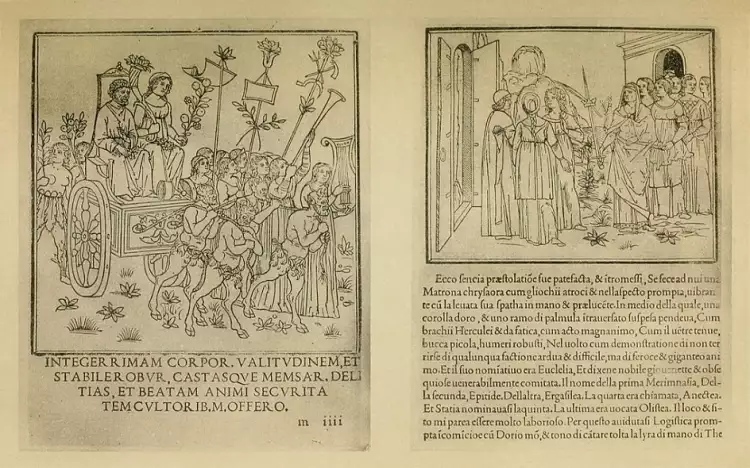 INTEGERRIMAM CORPOR. VALITVDINEM, ET
STABILEROBVR, CASTASQVE MEMSAR. DELI
TIAS, ET BEATAM ANIMI SECVRITA
TEMCVLTORIB.M.OFFERO.
m iiii
Ecco sencia præstolatiõe fue patefacta, & ítromessi, Se fece ad nui una
Matrona chrysaora cum gliochii atroci & nellaspecto prompta, uibran
te cũ la leuata sua spatha in mano & prælucẽte. In medio della quale, una
corolla doro, & uno ramo di palmula ítrauersato suspesa pendeua, Cum
brachii Herculei & da fatica, cum acto magnanimo, Cum il uẽtre tenue,
bucca picola, humeri robusti, Nel uolto cum demonstratione di non ter
rirse di qualunqua factione ardua & difficile, ma di feroce & giganteo ani
mo. Et il suo nomíatiuo era Euclelia, Et dixene nobile giouenette & obse
quiose uenerabilmente comitata. Il nome della prima Merimnasia, Del-
la secunda, Epitide. Dellaltra, Ergasilea. La quarta era chiamata, Anectea.
Et Statia nominauasi la quinta. La ultima era uocata Olistea. Il loco & si-
to mi parea essere molto laborioso. Per questo auidutasi Logistica prom-
pta ícomícioe cũ Dorio mõ, & tono di cãtare tolta la lyra di mano di The